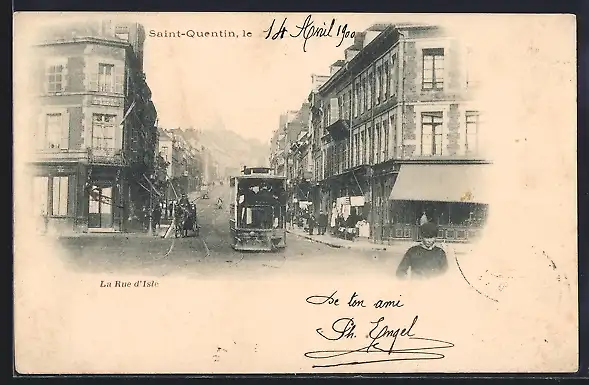 Saint-Quentin, le 14 Avril 1900
La Rue d'Isle
De ton ami
Ph. Engel